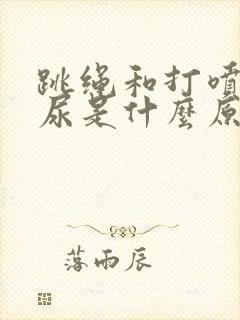 跳绳和打喷
尿是什麼原
落雨辰